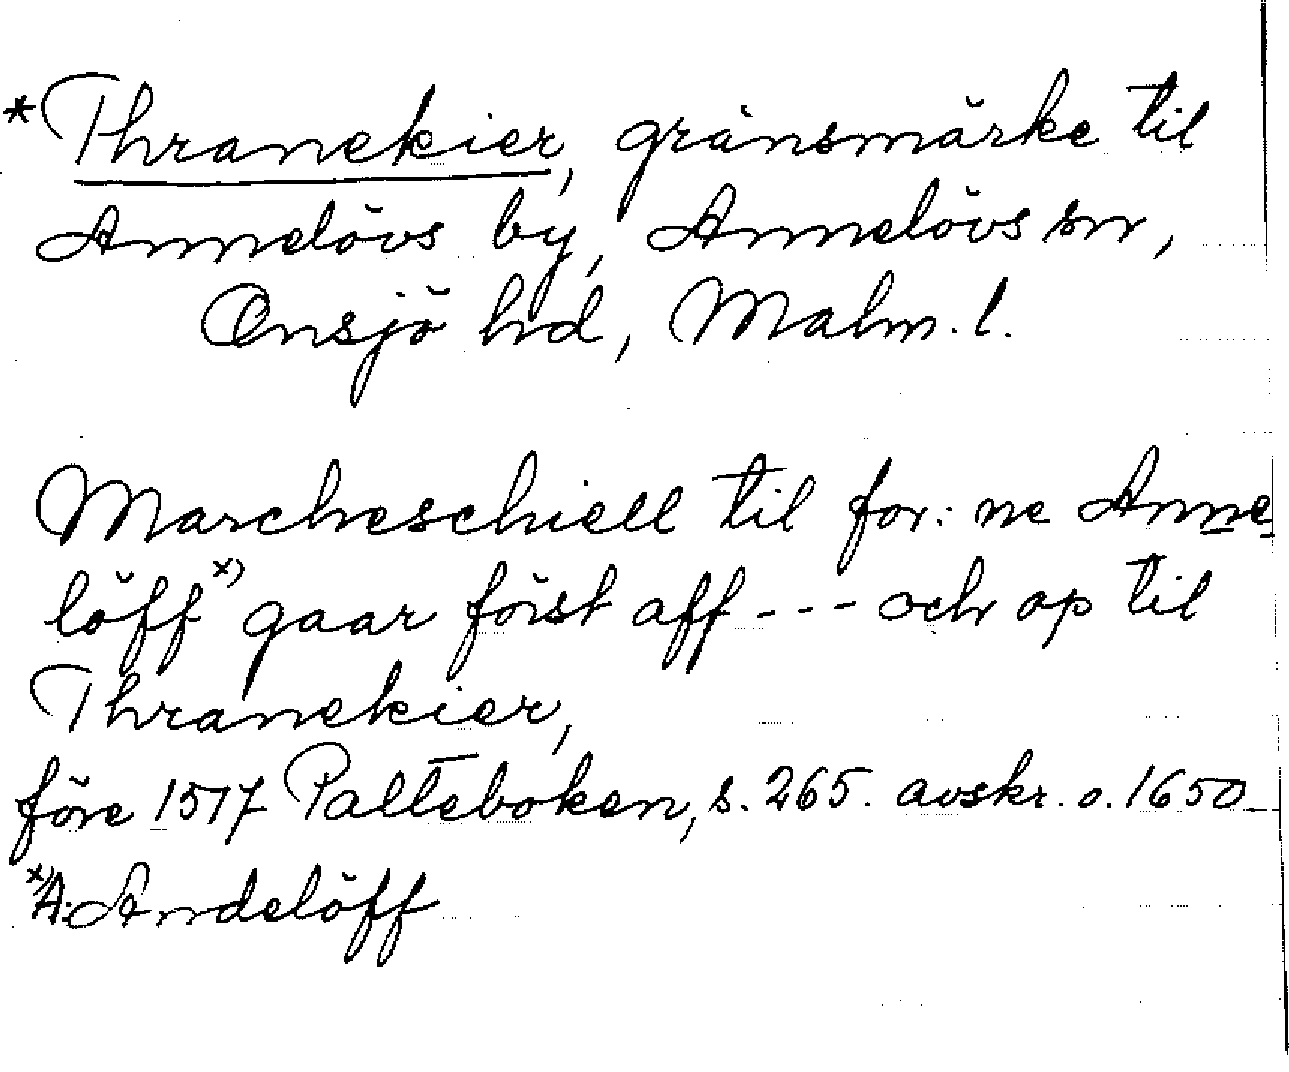 *Thranekier, gränsmärke til
Annelövs by, Annelövs sn,
Onsjö hd, Malm. l.
Marcheschiell til for: ne Anne
löff x) gaar först aff --- och op til
Thranekier,
före 1517 Palteboken, s. 265. avskr. o. 1650
x) A: Andelöff